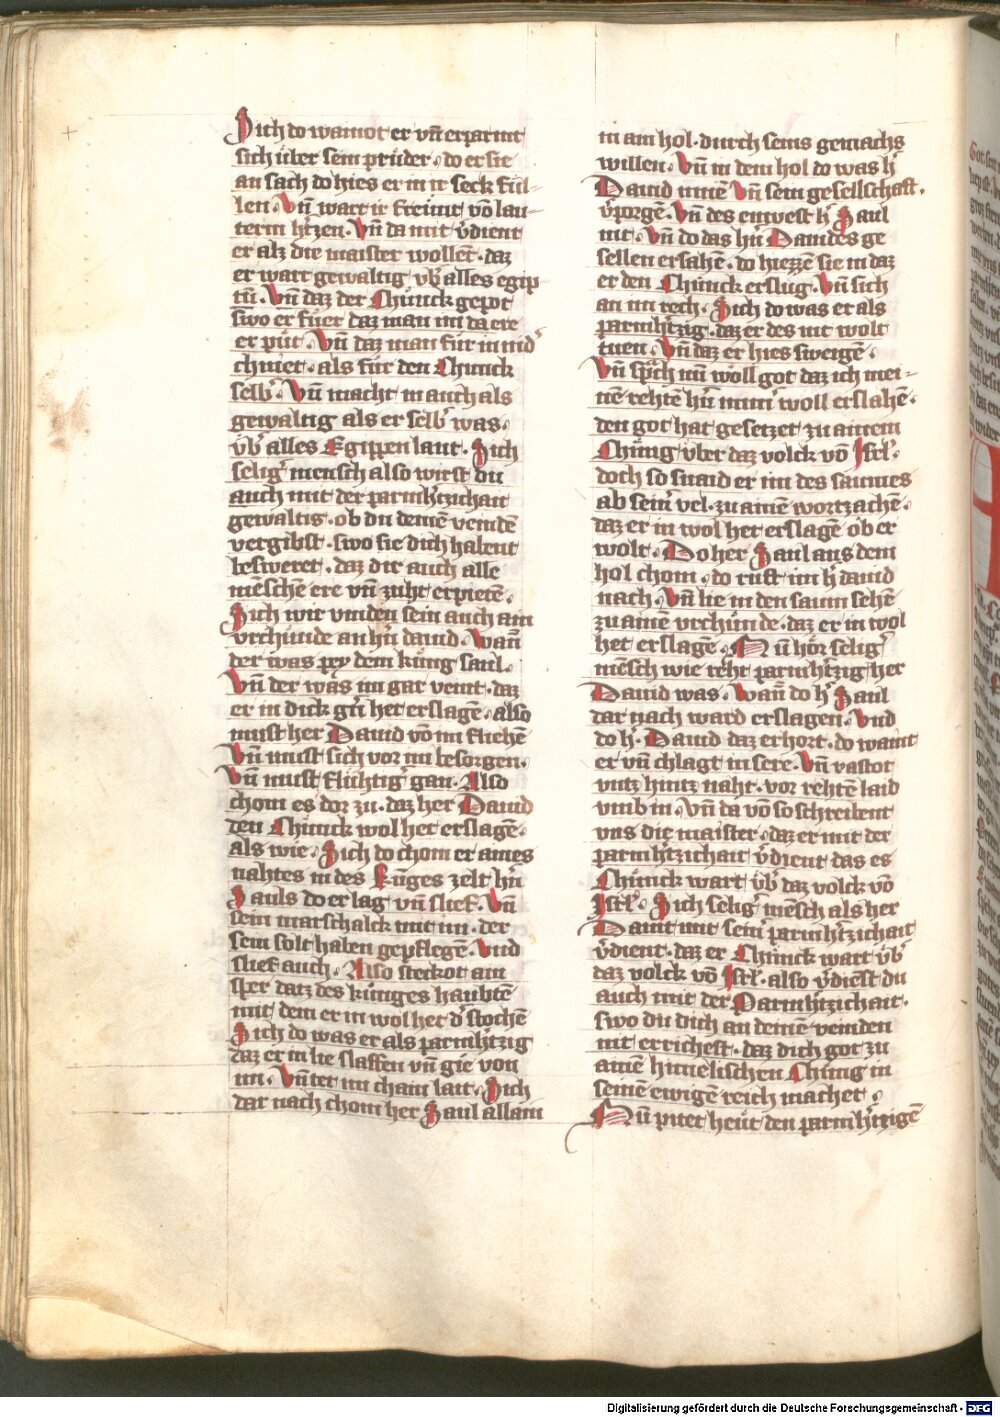 Sich do wainot er vñ erparmt
sich über sein prüder. do er sie
an sach do hies er in ir seck fül-
len. Vñ wart ir freünt võ lau-
term h'tzen. Vñ da mit v̄dient
er alz die maister wollent. daz
er wart gewaltig vb' alles egip-
tũ. Vñ daz der Chünck gepot
swo er füer daz man im da ere
er püt. Vñ daz man für in nid'
chniet. als für den Chünck
selb'. Vñ macht in auch als
gewaltig als er selb' was.
vb' alles Egippen lant. Sich
selig' mensch also wirst du
auch mit der parmh'tzichait
gewaltig. ob du deinē veindē
vergibst. swo sie dich habent
besweret. daz dir auch alle
mēschē ere vñ zuht erpietē.
Sich wir vinden sein auch ain
vrchünde an h'n dauid. Wañ
der was pey dem küng saul.
Vñ der was im gar veint. daz
er in dick gũ het erslagē. also
must her Dauid võ im fliehē
Vñ must sich vor im besorgen.
Vñ must flüchtig gan. Also
chom es dor zu. daz her Dauid
den Chünck wol het erslagē.
als wie. Sich do chom er aines
nahtes in des Küges zelt h'n
Sauls do er lag vñ slief. Vñ
sein marschalck mit im. der
sein solt haben gepflegē. Vnd
slief auch. Also steckot ain
sper datz des künges haubtē
mit dem er in wol het d'stochē
Sich do was er als parmh'tzig
daz er in lie slaffen vñ gie von
im. Vñ tet im chain lait. Sich
dar nach chom her Saul allain
in ain hol. durch seins gemachs
willen. Vñ in dem hol do was h'
Dauid inne Vñ sein geselschaft.
v'porgē. Vñ des enwest h' Saul
nit. Vñ do das h'n Dauides ge
sellen ersahē. do hiezzē sie in daz
er den Chünck erslug. Vñ sich
an im rech. Sich do was er als
parmh'tzig. daz er des nit wolt
tuen. Vñ daz er hies sweigē.
Vñ sp'ch nũ woll got daz ich mei-
nē rehtē h'n nim' woll erslahē.
den got hat gesetzet zu ainem
Chünig über daz volck võ Isrl'.
doch so snaid er im des saumes
ab seim vel. zu ainē wortzachē.
daz er in wol het erslagē ob er
wolt. Do her Saul aus dem
hol chom. do ruft im h' dauid
nach. Vñ lie in den saum sehē
zu ainē vrchünde. daz er in wol
het erslagē. Nũ hör selig'
mēsch wie reht parmh'tzig her
Dauid was. Wañ do h' Saul
dar nach ward erslagen. Vnd
do h'. Dauid daz erhort. do waint
er vñ chlagt in sere. Vñ vastot
vntz hintz naht. vor rehtē laid
vmb in. Vñ da võ so schreibent
vns die maister. daz er mit der
parmh'tzichait v̄dient das er
Chünck wart vb' daz volck võ
Isrl'. Sich selig' mēsch als her
Dauit mit sein' parmh'tzichait
v̄dient. daz er Chünck wart vb'
daz volck võ Isrl'. also v̄dienst du
auch mit der Parmh'tzichait.
swo du dich an deinē veinden
nit errichest. daz dich got zu
ainē himelischen Chüng in
seinē ewigē reich machet.
Nũ pitet heüt den parmh'tzigē
Digitalisierung gefördert durch die Deutsche Forschungsgemeinschaft - DFG